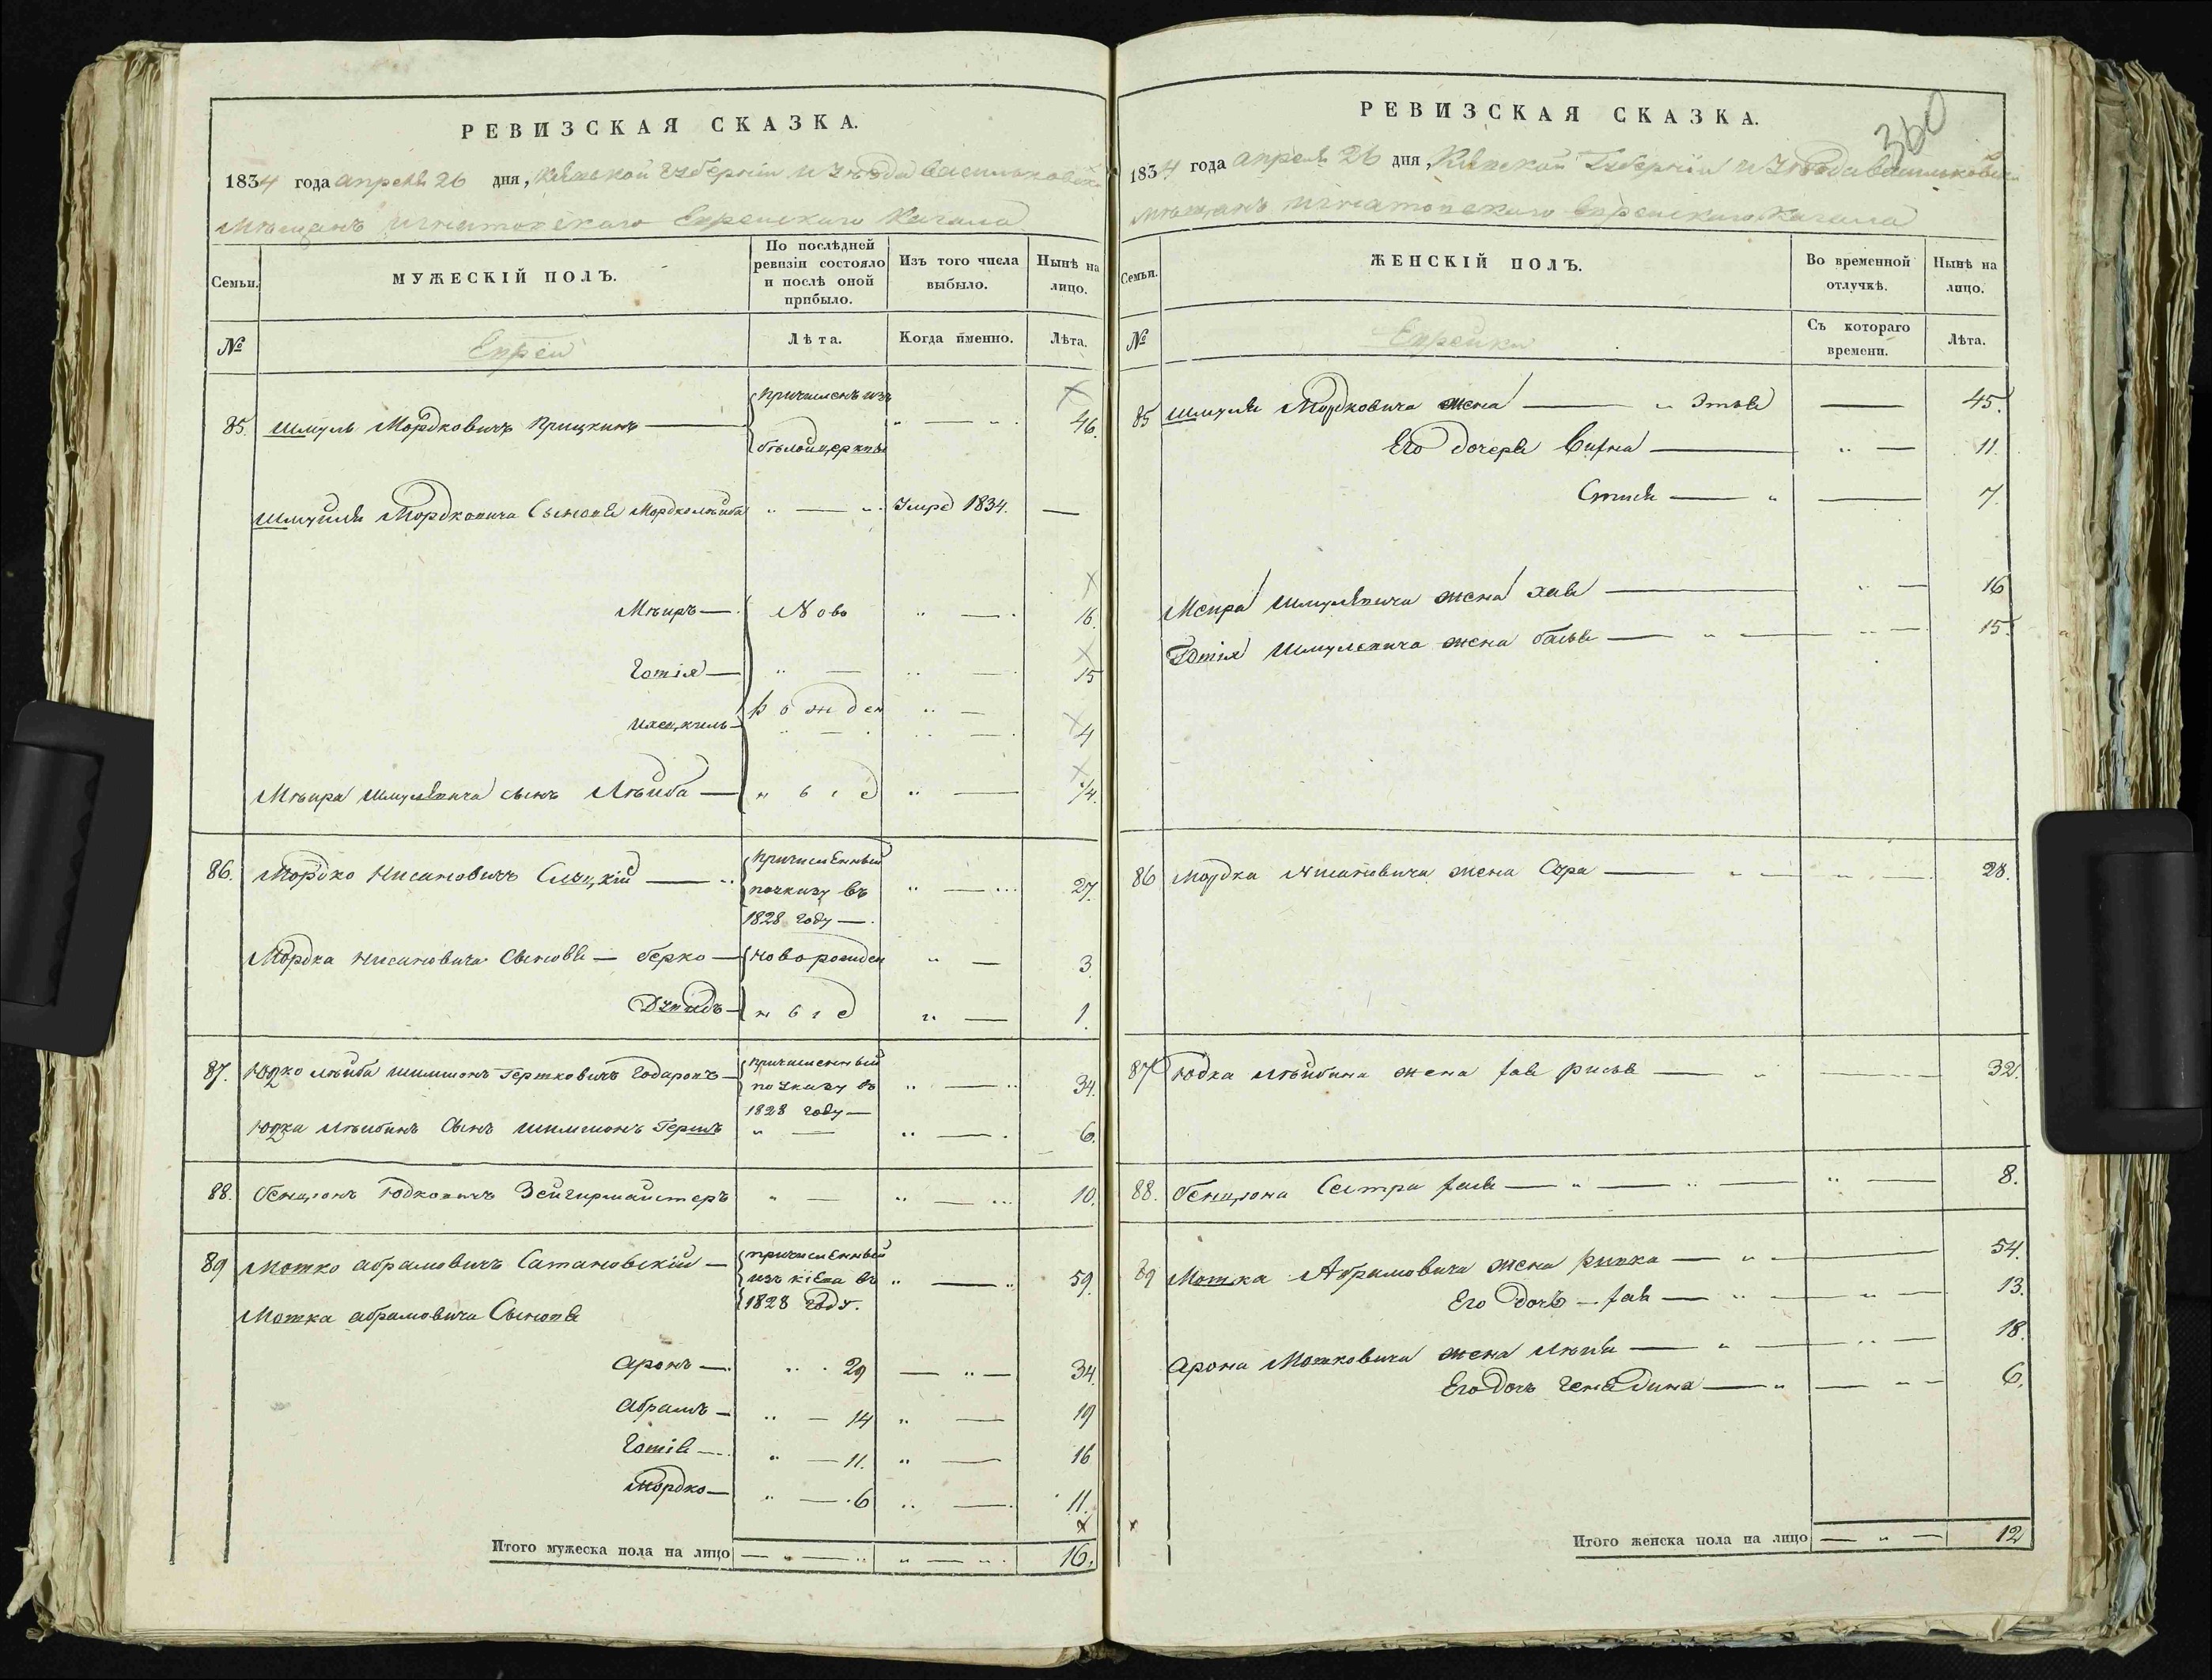 РЕВИЗСКАЯ СКАЗКА.
1834 года апреля 26 дня, Кіевской губерніи и уѣзда Васильковск
мѣщанъ Игнатовскаго Еврейскаго Кагала
Семьи.
МУЖЕСКІЙ ПОЛЪ.
По послѣдней ревизіи состояло и послѣ оной прибыло.
Изъ того числа выбыло.
Нынѣ на лицо.
№
Евреи
Лѣта.
Когда именно.
Лѣта.
85. Шмуль Мордковичъ причисленъ изъ бѣлойцеркви „ — „ 46.
Шмуиля Мордковича Сыновья Мордколѣйба „ — „ Умре 1834. —
Мѣиръ — Ново „ — 16.
Готія — „ — „ — 15
Ихецкиль — рожден „ — 4
Мѣира Шмулевича сынъ Лѣйба — ные „ — 1/4.
86. Мордко Нисановичъ Слуцкій — причисленный поуказу въ 1828 году — „ — 27.
Мордка Нисановича Сыновья — Берко — Новорожден „ — 3.
Дувидъ — ные „ — 1.
87. Юдко Лѣйба Шимшонъ Гершковичъ — причисленный по указу въ 1828 году — „ — 34.
Юдка Лѣйбинъ Сынъ Шимшонъ Гершъ „ — „ — 6.
88. Бенцïонъ Юдковичъ Зейгирмайстеръ „ — „ — 10.
89 Мотко Абрамовичъ Сатановскій — причисленный изъ Кіева въ 1828 году. „ — „ 59.
Мотка Абрамовича Сыновья
Аронъ — „ 29 — „ — 34.
Абрамъ — „ — 14 „ — 19
Готія — „ — 11. „ — 16
Мордко — „ — 6 „ — 11.
Итого мужеска пола на лицо — „ — „ „ — „ 16.
360
РЕВИЗСКАЯ СКАЗКА.
1834 года апреля 26 дня, Кіевской Губерніи и Уѣзда Васильковск
мѣщанъ Игнатовскаго Еврейскаго Кагала
Семьи.
ЖЕНСКІЙ ПОЛЪ.
Во временной отлучкѣ.
Нынѣ на лицо.
№
Еврейки
Съ котораго времени.
Лѣта.
85 Шмуля Мордковича жена — „ Этля — 45.
Его дочеря — „ — 11.
— „ — 7.
Меира Шмулевича жена Хая — „ — 16
Готія Шмулевича жена — „ — „ — 15.
86 Мордка Нисановича жена Сура — „ — „ — 28.
87 Юдка Лѣйбина жена Хая Рися — „ — 32.
88. Бенцïона Сестра Хая — „ — „ — „ — 8.
89 Мотка Абрамовича жена Ривка — „ — 54.
Его дочь — Хая — „ — „ — 13.
Арона Мотковича жена — „ — „ — 18.
Его дочь Генядина — „ — „ — 6.
Итого женска пола на лицо — „ — 12